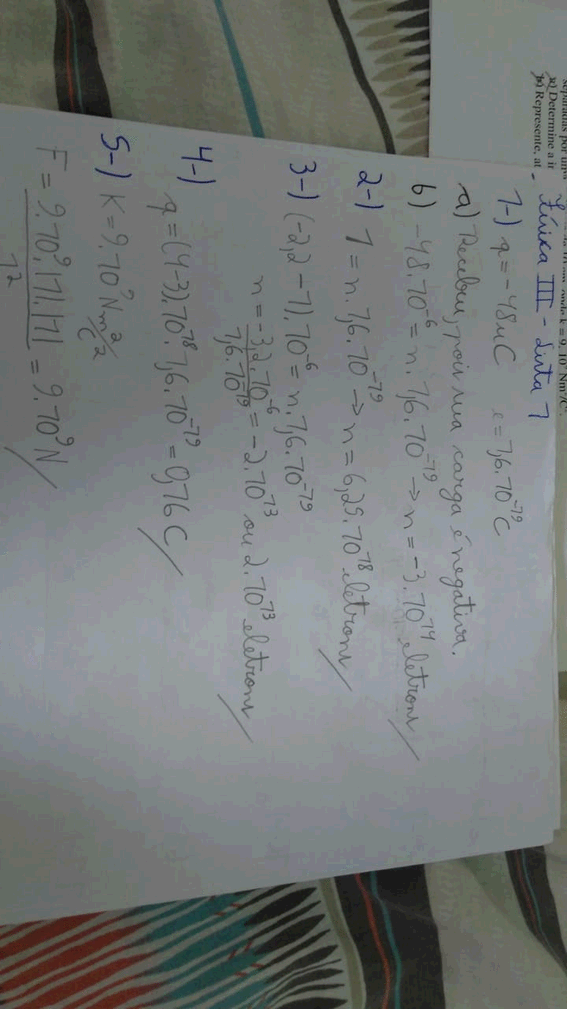 separadas por uma
a) Determine a i
b) Represente, at
onde k = 9.10⁹ Nm²/C².
Física III - Lista 1
1-) q = -48uC e = 1,6.10⁻¹⁹C
a) Recebeu, pois sua carga é negativa.
b) -48.10⁻⁶ = n.1,6.10⁻¹⁹ → n = -3.10¹⁴ eletrons //
2-) 1 = n.1,6.10⁻¹⁹ → n = 6,25.10¹⁸ eletrons //
3-) (-2,2 - 1).10⁻⁶ = n.1,6.10⁻¹⁹
n = -3,2.10⁻⁶ / 1,6.10⁻¹⁹ = -2.10¹³ ou 2.10¹³ eletrons //
4-)
q = (4-3).10¹⁸.1,6.10⁻¹⁹ = 0,16 C //
5-) K = 9.10⁹ N m²/C²
F = 9.10⁹.|1|.|1| / 1² = 9.10⁹ N //